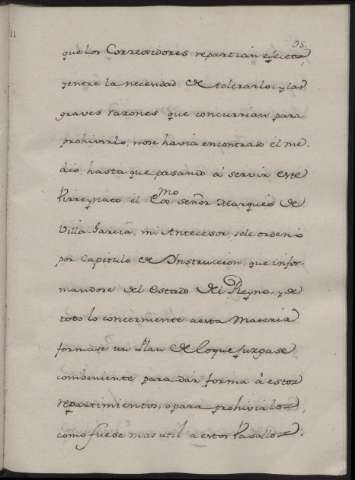 95
que los Corregidores repartian efectos,
gentre la necesidad de tolerarlo, y las
graves razones que concurrian para
prohivirlo, nose havia encontrado el me-
dio, hasta que pasando á servir este
Virreynato el Exmo señor Marques de
Villa Garcia, mi Antecesor, sele ordenó
por Capitulo de Instruccion, que infor-
mandose del Estado del Reyno, y de
todo lo concerniente aesta Materia
formase un Plan de loque juzgase
combeniente para dar forma á estos
repartimientos, ó para prohivirlos,
como fuese mas util á estos Vasallos